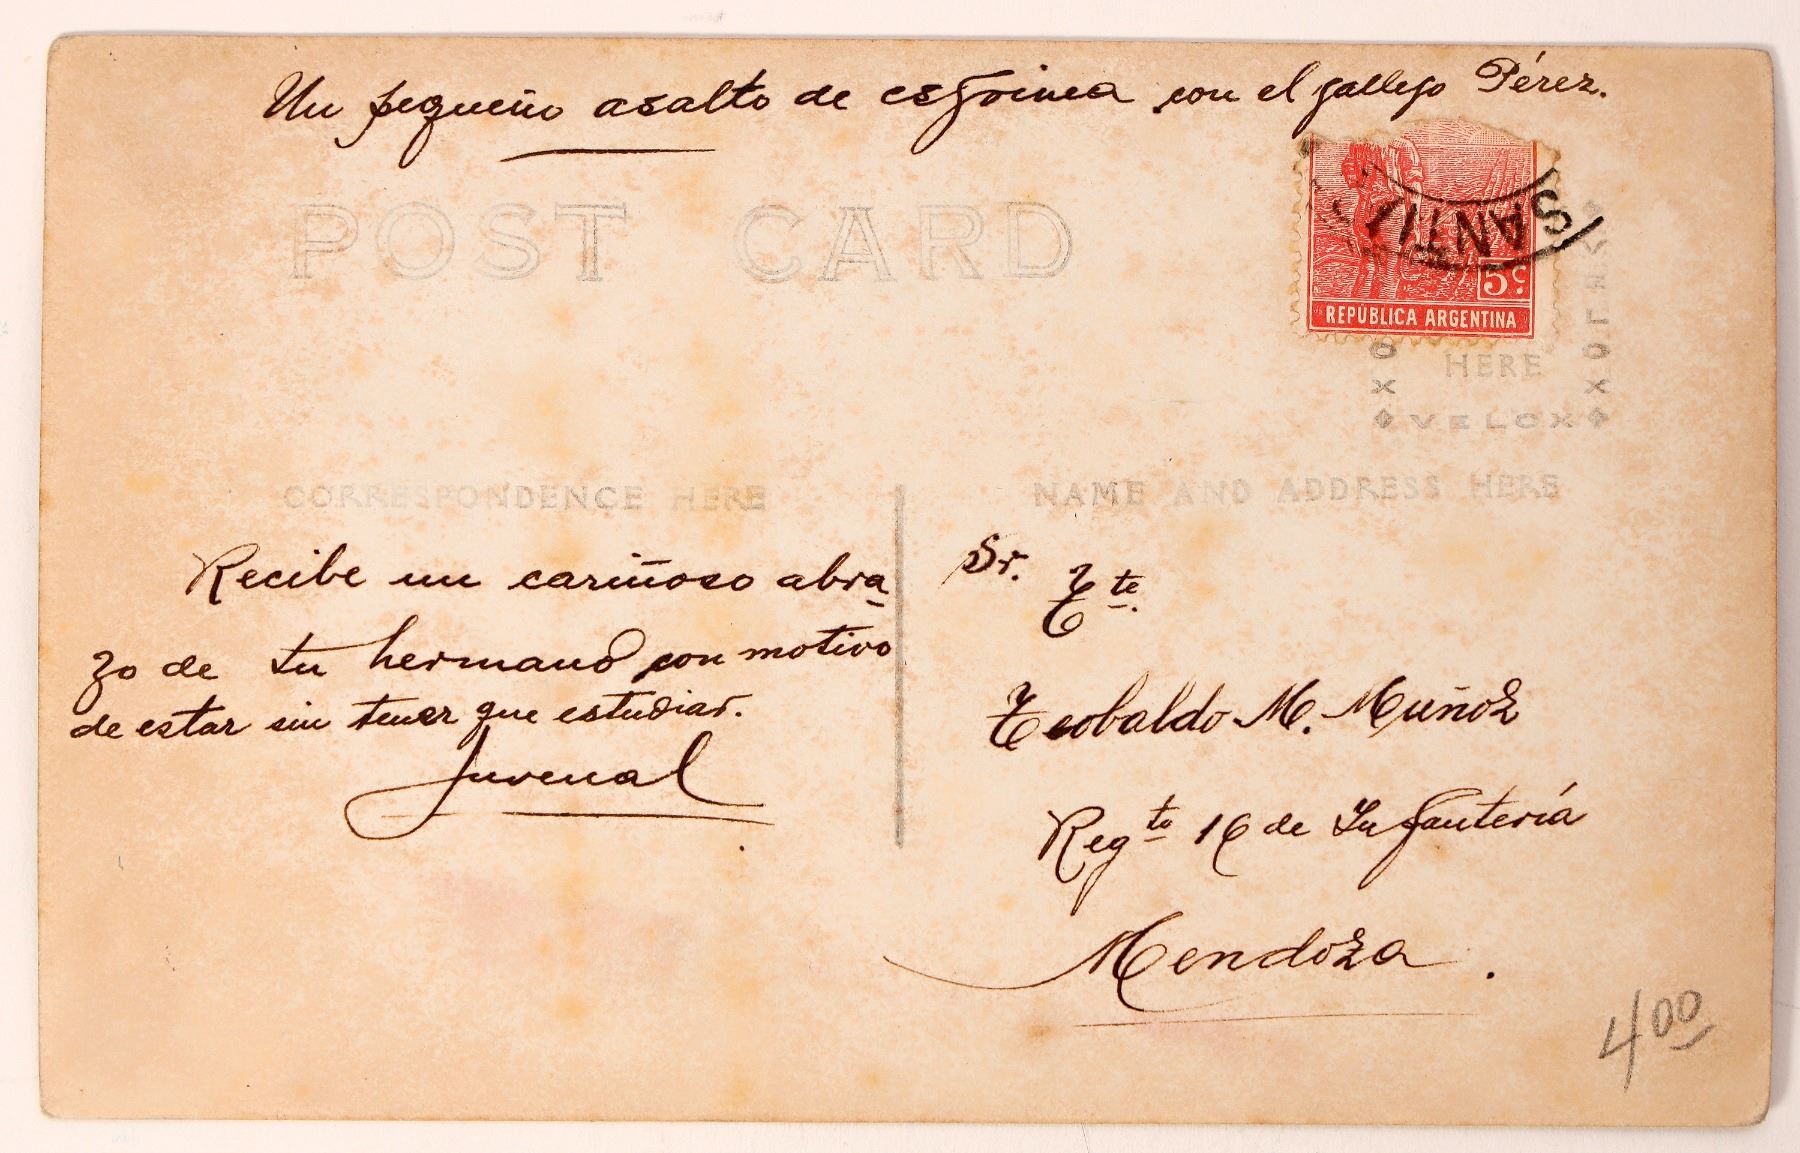 Un pequeño asalto de esgrima con el gallego Pérez.
POST CARD
SANTI
5c.
REPÚBLICA ARGENTINA
HERE
VELOX
CORRESPONDENCE HERE
NAME AND ADDRESS HERE
Recibe un cariñoso abra-
zo de tu hermano con motivo
de estar sin tener que estudiar.
Juvenal
Sr. Tte.
Teobaldo M. Muñoz
Regto 16 de Infantería
Mendoza.
400